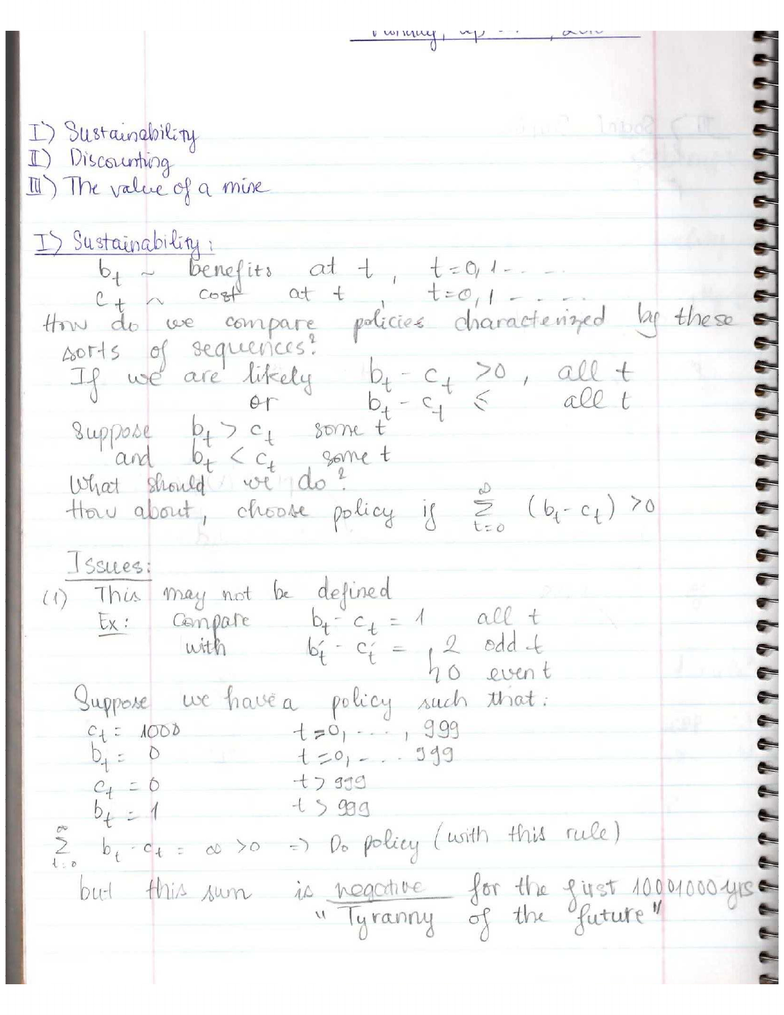 I) Sustainability
II) Discounting
III) The value of a mine
I) Sustainability:
bt ~ benefits at t, t=0,1-.....
ct ~ cost at t, t=0,1-.....
How do we compare policies characterized by these
sorts of sequences?
If we are likely bt - ct >0, all t
or bt - ct ≤ all t
Suppose bt > ct some t
and bt < ct some t
What should we do?
How about, choose policy if ∞ Σ t=0 (bt - ct) >0
Issues:
(1) This may not be defined
Ex: Compare bt - ct = 1 all t
with b't - c't = { 2 odd t
0 even t
Suppose we have a policy such that:
ct = 1000 t=0,..., 999
bt = 0 t=0,-... 999
ct = 0 t> 999
bt = 1 t> 999
∞ Σ t=0 bt - ct = ∞ >0 => Do policy (with this rule)
but this sum is negative for the first 10001000 yrs
"Tyranny of the future"